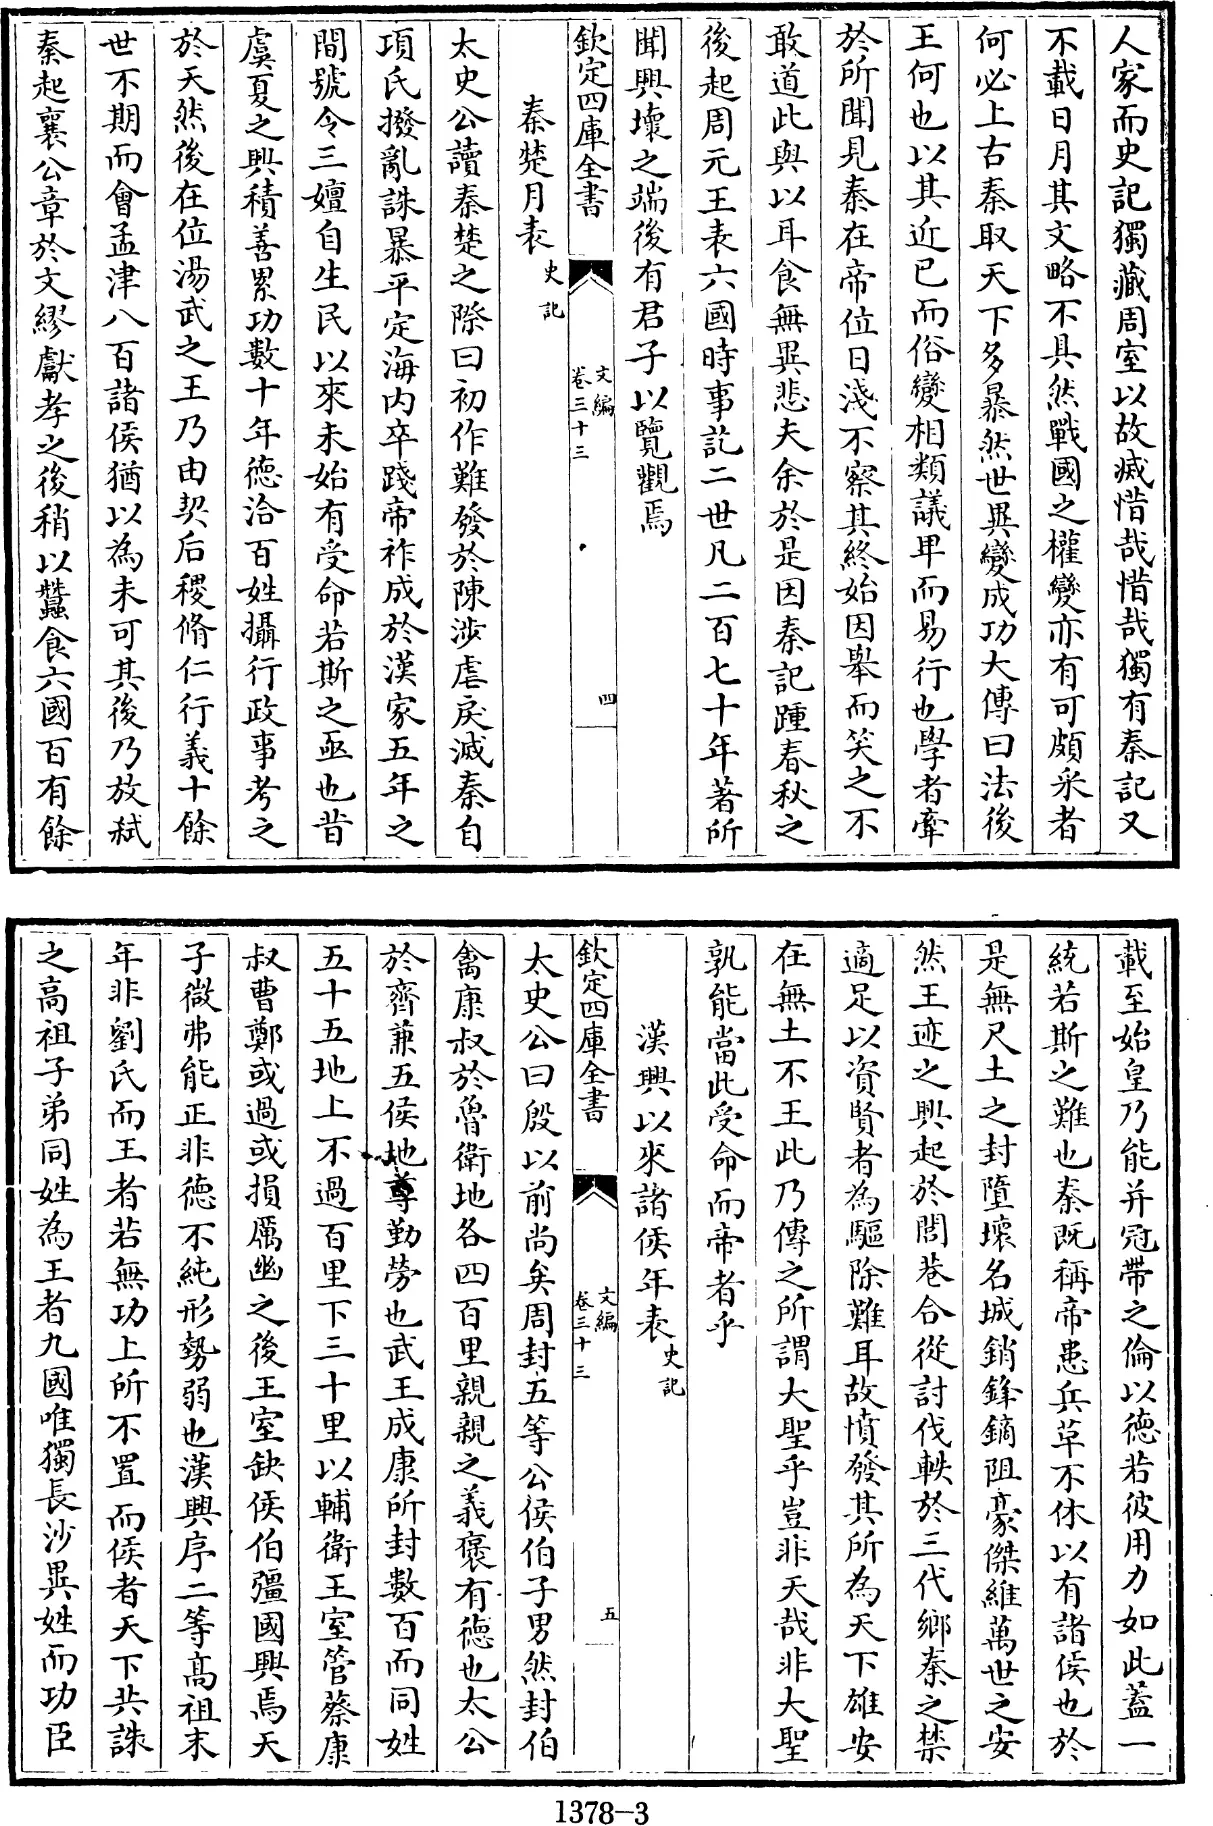 人家而史記獨藏周室以故滅惜哉惜哉獨有秦記又
不載日月其文略不具然戰國之權變亦有可頗采者
何必上古秦取天下多暴然世異變成功大傳曰法後
王何也以其近已而俗變相類議卑而易行也學者牽
於所聞見秦在帝位日淺不察其終始因舉而笑之不
敢道此與以耳食無異悲夫余於是因秦記踵春秋之
後起周元王表六國時事訖二世凡二百七十年著所
聞興壞之端後有君子以覽觀焉
欽定四庫全書
文編
卷三十三
四
秦楚月表 史記
太史公讀秦楚之際曰初作難發於陳涉虐戾滅秦自
項氏撥亂誅暴平定海内卒踐帝祚成於漢家五年之
間號令三嬗自生民以來未始有受命若斯之亟也昔
虞夏之興積善累功數十年德洽百姓攝行政事考之
於天然後在位湯武之王乃由契后稷脩仁行義十餘
世不期而會孟津八百諸侯猶以為未可其後乃放弑
秦起襄公章於文繆獻孝之後稍以蠶食六國百有餘
載至始皇乃能并冠帶之倫以德若彼用力如此蓋一
統若斯之難也秦既稱帝患兵革不休以有諸侯也於
是無尺土之封墮壞名城銷鋒鏑阻豪傑維萬世之安
然王迹之興起於閭巷合從討伐軼於三代鄉秦之禁
適足以資賢者為驅除難耳故憤發其所為天下雄安
在無土不王此乃傳之所謂大聖乎豈非天哉非大聖
孰能當此受命而帝者乎
漢興以來諸侯年表 史記
欽定四庫全書
文編
卷三十三
五
太史公曰殷以前尚矣周封五等公侯伯子男然封伯
禽康叔於魯衛地各四百里親親之義褒有德也太公
於齊兼五侯地尊勤勞也武王成康所封數百而同姓
五十五地上不過百里下三十里以輔衛王室管蔡康
叔曹鄭或過或損厲幽之後王室缺侯伯彊國興焉天
子微弗能正非德不純形勢弱也漢興序二等高祖末
年非劉氏而王者若無功上所不置而侯者天下共誅
之高祖子弟同姓為王者九國唯獨長沙異姓而功臣
1378-3